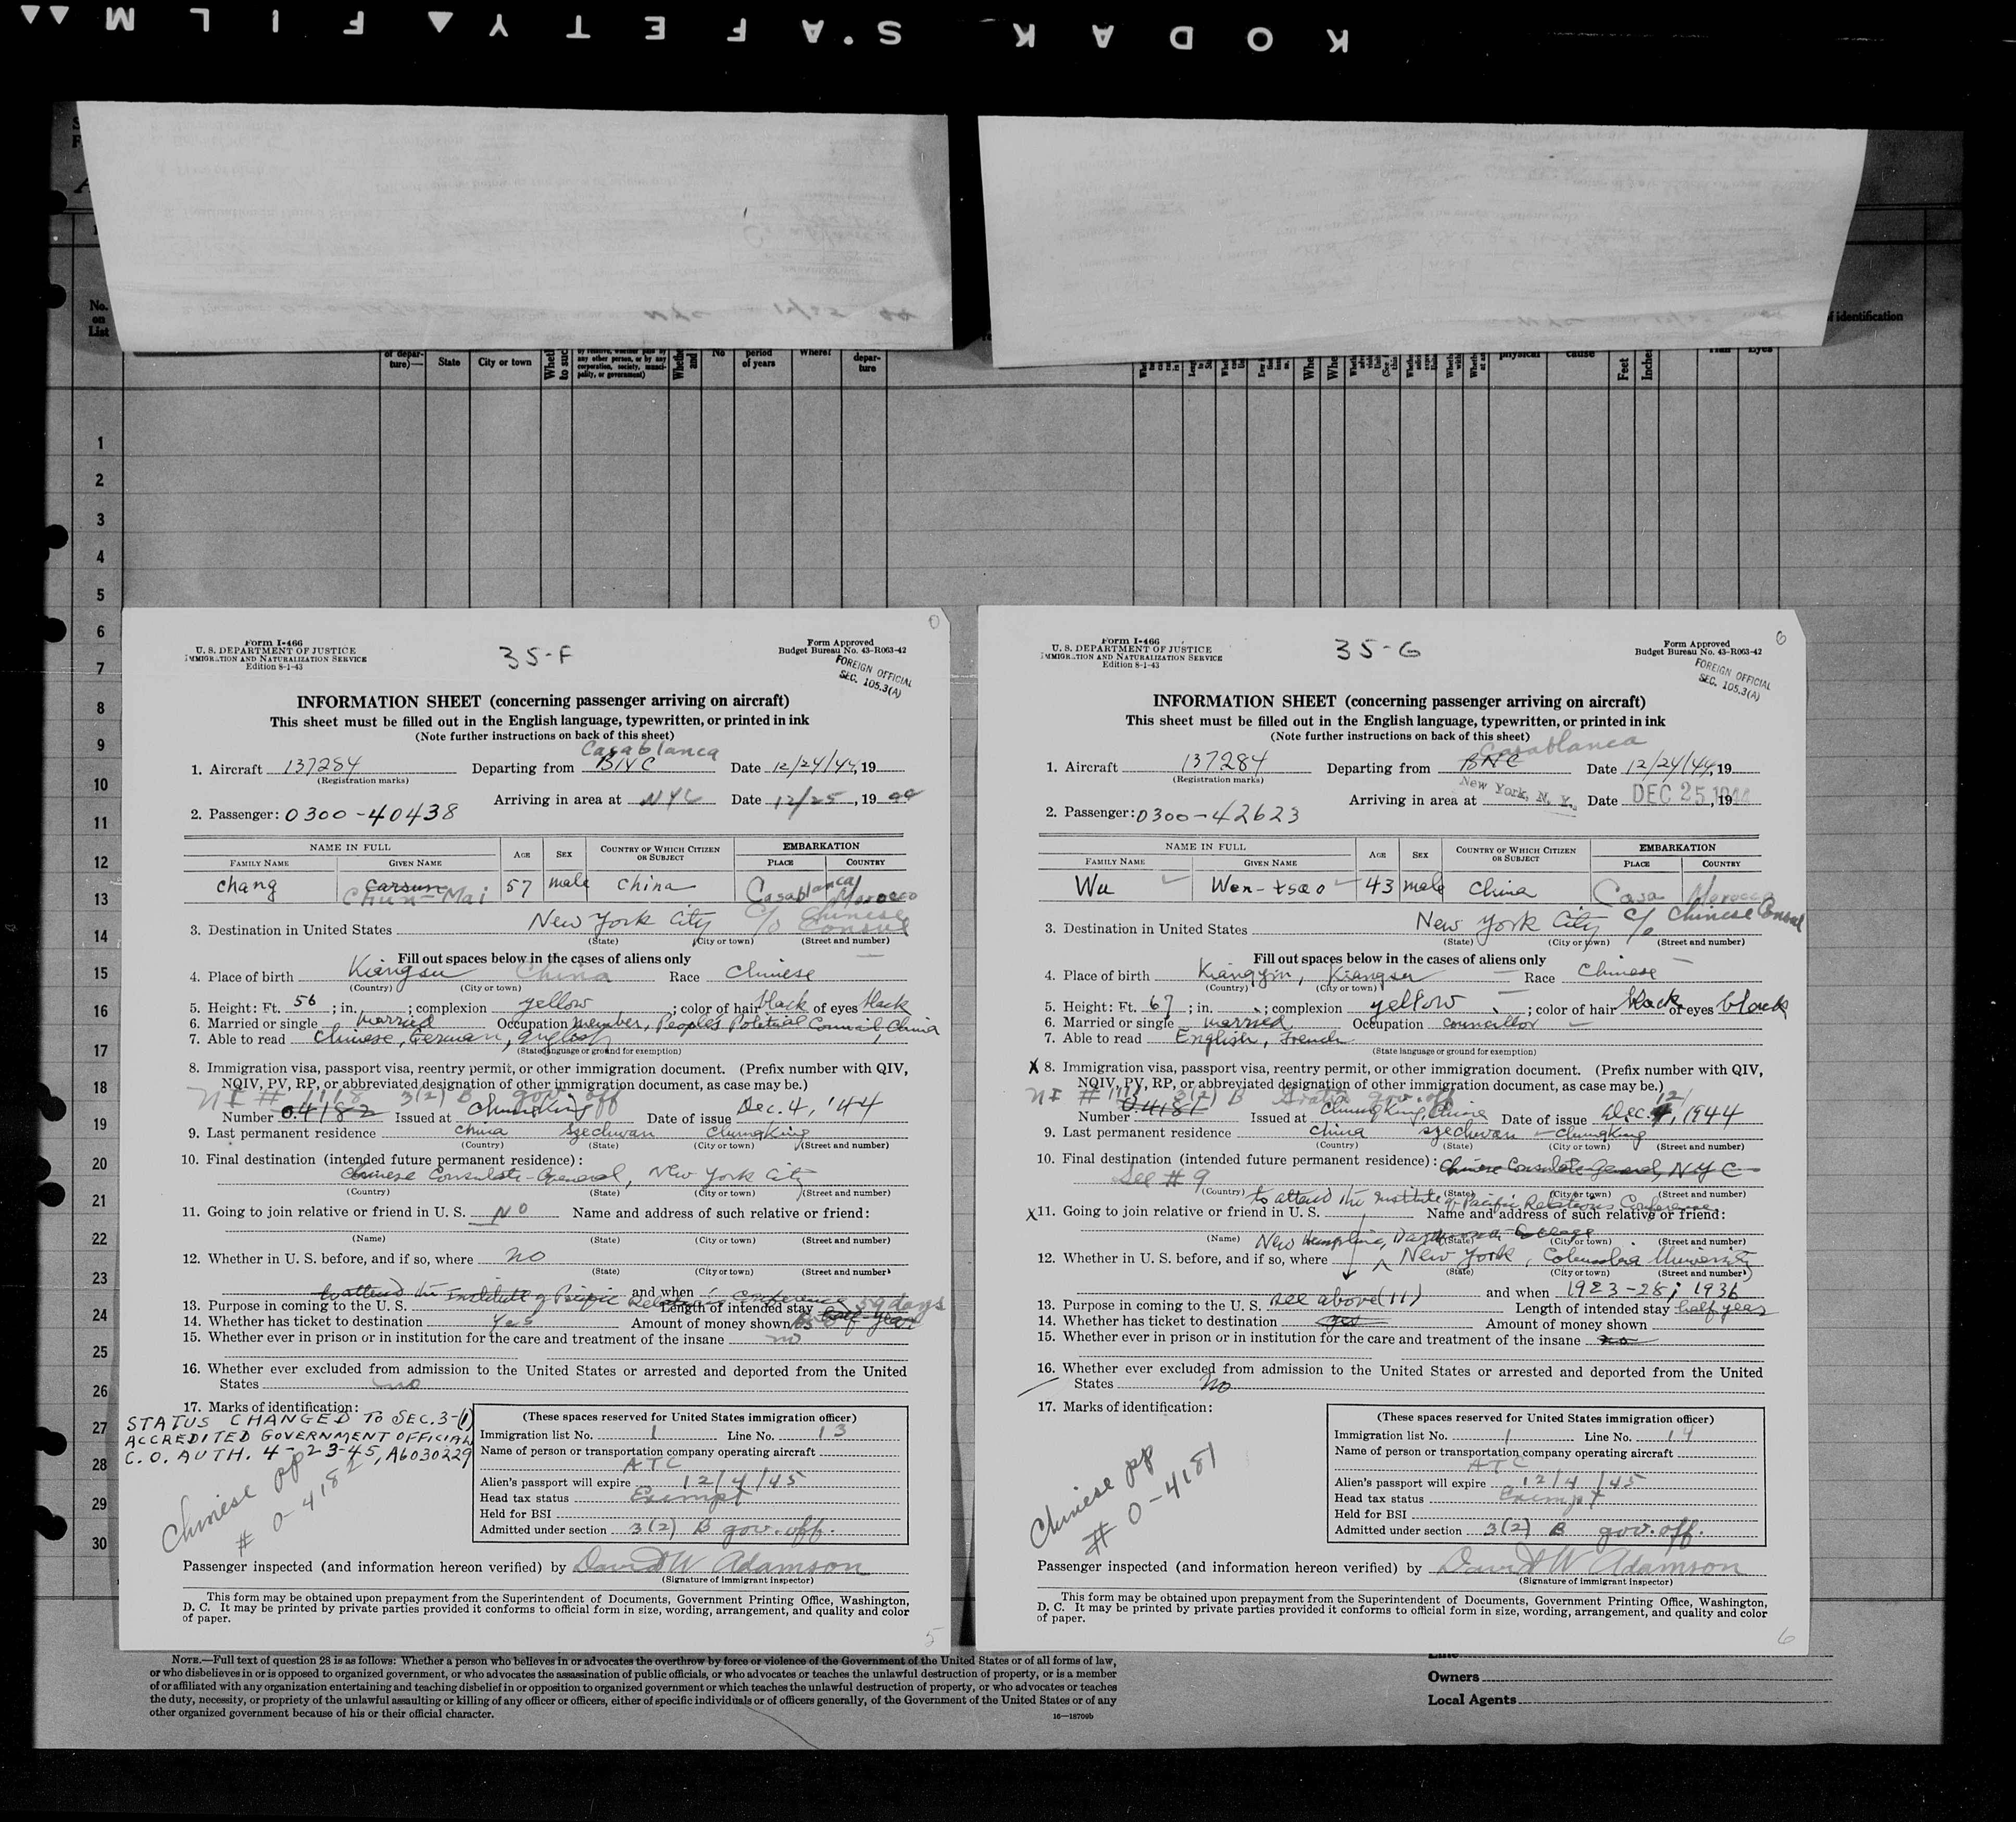 KODAK SAFETY FILM
No.
on
List
of depar-
ture)—
State
City or town
any other person, or by any
corporation, society, munici-
pality, or government)
No
period
of years
Where?
depar-
ture
physical
cause
Feet
Inches
Eyes
of identification
1
2
3
4
5
6
7
8
9
10
11
12
13
14
15
16
17
18
19
20
21
22
23
24
25
26
27
28
29
30
Form I-466
U. S. DEPARTMENT OF JUSTICE
IMMIGRATION AND NATURALIZATION SERVICE
Edition 8-1-43
35-F
Form Approved
Budget Bureau No. 43-R063-42
FOREIGN OFFICIAL
SEC. 105.3(A)
INFORMATION SHEET (concerning passenger arriving on aircraft)
This sheet must be filled out in the English language, typewritten, or printed in ink
(Note further instructions on back of this sheet)
Casablanca
1. Aircraft 137284 Departing from BNC Date 12/24/44, 19
(Registration marks)
Arriving in area at NYC Date 12/25, 1944
2. Passenger: 0300-40438
NAME IN FULL AGE SEX COUNTRY OF WHICH CITIZEN OR SUBJECT EMBARKATION
FAMILY NAME GIVEN NAME PLACE COUNTRY
Chang Carsun 57 male China Casablanca Morocco
Chun-Mai
3. Destination in United States New York City c/o Chinese Consul
(State) (City or town) (Street and number)
Fill out spaces below in the cases of aliens only
4. Place of birth Kiangsu China Race Chinese
(Country) (City or town)
5. Height: Ft. 56; in. ; complexion yellow; color of hair black of eyes black
6. Married or single married Occupation member, People's Political Council, China
7. Able to read Chinese, German, English
(State language or ground for exemption)
8. Immigration visa, passport visa, reentry permit, or other immigration document. (Prefix number with QIV,
NQIV, PV, RP, or abbreviated designation of other immigration document, as case may be.)
NI # 1118 3(2) B gov. off
Number 04182 Issued at Chungking Date of issue Dec. 4, '44
9. Last permanent residence China Szechwan Chungking
(Country) (State) (City or town) (Street and number)
10. Final destination (intended future permanent residence):
Chinese Consulate-General, New York City
(Country) (State) (City or town) (Street and number)
11. Going to join relative or friend in U. S. NO Name and address of such relative or friend:
(Name) (State) (City or town) (Street and number)
12. Whether in U. S. before, and if so, where no
(State) (City or town) (Street and number)
and when
to attend the Institute of Pacific Relations Conference
13. Purpose in coming to the U. S. Length of intended stay half-year 59 days
14. Whether has ticket to destination Yes Amount of money shown
15. Whether ever in prison or in institution for the care and treatment of the insane no
16. Whether ever excluded from admission to the United States or arrested and deported from the United
States no
17. Marks of identification:
STATUS CHANGED TO SEC. 3-(1)
ACCREDITED GOVERNMENT OFFICIAL
C. O. AUTH. 4-23-45, A6030229
Chinese pp
# 0-4182
(These spaces reserved for United States immigration officer)
Immigration list No. 1 Line No. 13
Name of person or transportation company operating aircraft
ATC
Alien's passport will expire 12/4/45
Head tax status Exempt
Held for BSI
Admitted under section 3(2) B gov. off.
Passenger inspected (and information hereon verified) by David W Adamson
(Signature of immigrant inspector)
This form may be obtained upon prepayment from the Superintendent of Documents, Government Printing Office, Washington,
D. C. It may be printed by private parties provided it conforms to official form in size, wording, arrangement, and quality and color
of paper.
5
Form I-466
U. S. DEPARTMENT OF JUSTICE
IMMIGRATION AND NATURALIZATION SERVICE
Edition 8-1-43
35-G
6
Form Approved
Budget Bureau No. 43-R063-42
FOREIGN OFFICIAL
SEC. 105.3(A)
INFORMATION SHEET (concerning passenger arriving on aircraft)
This sheet must be filled out in the English language, typewritten, or printed in ink
(Note further instructions on back of this sheet)
Casablanca
1. Aircraft 137284 Departing from BNC Date 12/24/44, 19
(Registration marks)
Arriving in area at New York, N. Y. Date DEC 25 1944, 19
2. Passenger: 0300-42623
NAME IN FULL AGE SEX COUNTRY OF WHICH CITIZEN OR SUBJECT EMBARKATION
FAMILY NAME GIVEN NAME PLACE COUNTRY
Wu Wen-tsao 43 male China Casa Morocco
3. Destination in United States New York City c/o Chinese Consul
(State) (City or town) (Street and number)
Fill out spaces below in the cases of aliens only
4. Place of birth Kiangyin, Kiangsu Race Chinese
(Country) (City or town)
5. Height: Ft. 67; in. ; complexion yellow; color of hair black of eyes black
6. Married or single married Occupation councillor
7. Able to read English, French
(State language or ground for exemption)
X 8. Immigration visa, passport visa, reentry permit, or other immigration document. (Prefix number with QIV,
NQIV, PV, RP, or abbreviated designation of other immigration document, as case may be.)
NI # 3(2) B Gratis gov. off
Number 04181 Issued at Chungking, China Date of issue Dec. 12/4, 1944
9. Last permanent residence China Szechwan Chungking
(Country) (State) (City or town) (Street and number)
10. Final destination (intended future permanent residence): Chinese Consulate-General, NYC
See # 9
(Country) (State) (City or town) (Street and number)
to attend the Institute of Pacific Relations Conference
X 11. Going to join relative or friend in U. S. Name and address of such relative or friend:
(Name) (State) (City or town) (Street and number)
New Hampshire, Dartmouth College
12. Whether in U. S. before, and if so, where New York, Columbia University
(State) (City or town) (Street and number)
and when 1923-28; 1936
13. Purpose in coming to the U. S. see above (11) Length of intended stay half year
14. Whether has ticket to destination yes Amount of money shown
15. Whether ever in prison or in institution for the care and treatment of the insane no
16. Whether ever excluded from admission to the United States or arrested and deported from the United
States no
17. Marks of identification:
Chinese pp
# 0-4181
(These spaces reserved for United States immigration officer)
Immigration list No. 1 Line No. 14
Name of person or transportation company operating aircraft
ATC
Alien's passport will expire 12/4/45
Head tax status Exempt
Held for BSI
Admitted under section 3(2) B gov. off.
Passenger inspected (and information hereon verified) by David W Adamson
(Signature of immigrant inspector)
This form may be obtained upon prepayment from the Superintendent of Documents, Government Printing Office, Washington,
D. C. It may be printed by private parties provided it conforms to official form in size, wording, arrangement, and quality and color
of paper.
6
NOTE.—Full text of question 28 is as follows: Whether a person who believes in or advocates the overthrow by force or violence of the Government of the United States or of all forms of law,
or who disbelieves in or is opposed to organized government, or who advocates the assassination of public officials, or who advocates or teaches the unlawful destruction of property, or is a member
of or affiliated with any organization entertaining and teaching disbelief in or opposition to organized government or which teaches the unlawful destruction of property, or who advocates or teaches
the duty, necessity, or propriety of the unlawful assaulting or killing of any officer or officers, either of specific individuals or of officers generally, of the Government of the United States or of any
other organized government because of his or their official character.
16—18709b
Line
Owners
Local Agents